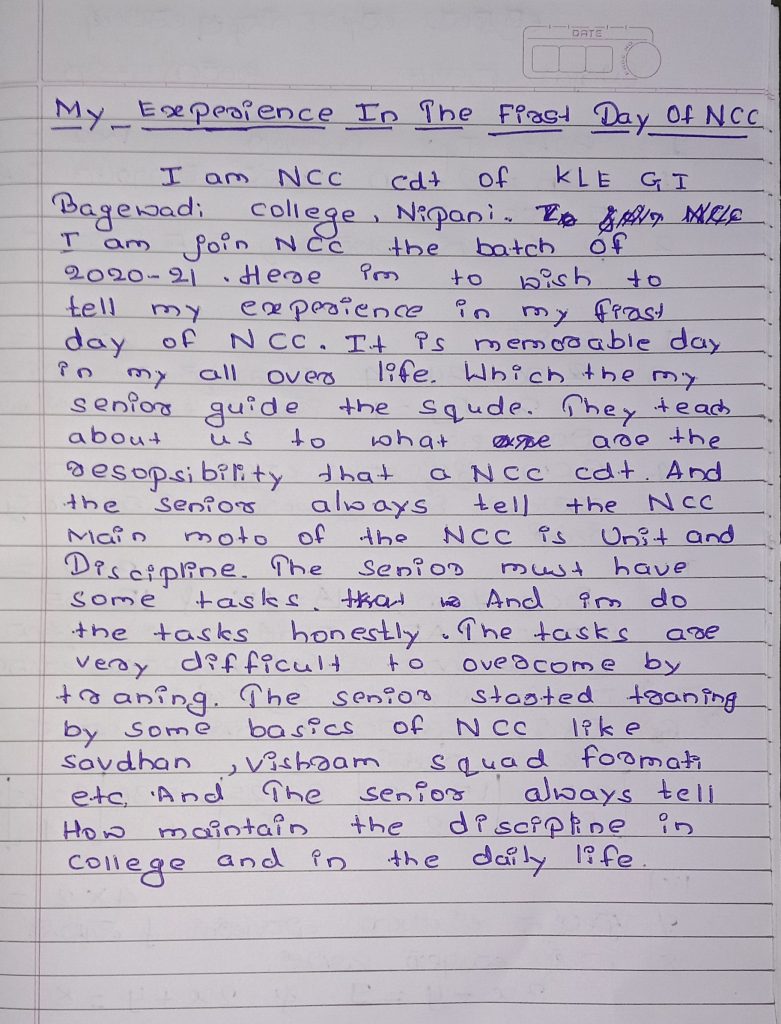 DATE
My Experience In The First Day Of NCC
I am NCC cdt of KLE G I
Bagewadi college, Nipani.
I am join NCC the batch of
2020-21. Here im to wish to
tell my experience in my first
day of NCC. It is memorable day
in my all over life. Which the my
senior guide the squde. They teach
about us to what are the
resopsibility that a NCC cdt. And
the senior always tell the NCC
Main moto of the NCC is Unit and
Discipline. The senior must have
some tasks. And im do
the tasks honestly. The tasks are
very difficult to overcome by
traning. The senior started traning
by some basics of NCC like
savdhan, vishram squad formati
etc, And The senior always tell
How maintain the discipline in
college and in the daily life.